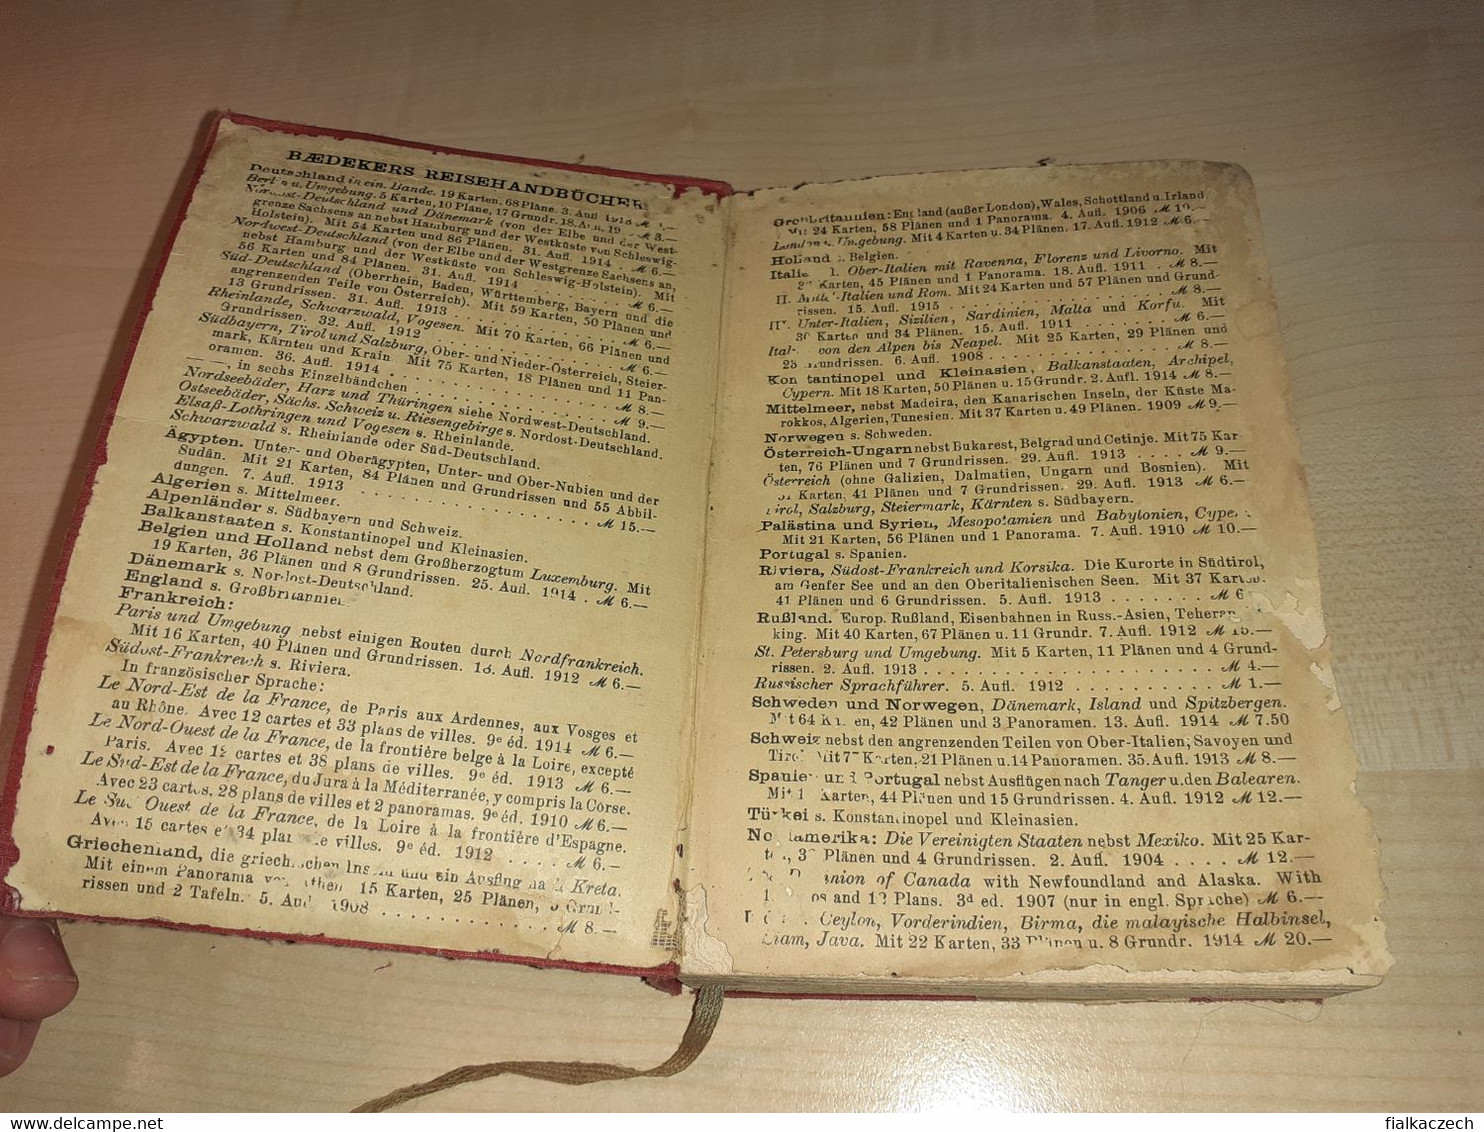 BÆDEKERS REISEHANDBÜCHER
Deutschland in ein. Bande. 19 Karten. 68 Pläne. 3. Aufl.
Berlin u. Umgebung. 5 Karten, 10 Pläne, 17 Grundr. 18. Aufl. 19 M 3.—
Nordost-Deutschland und Dänemark (von der Elbe und der West-
grenze Sachsens an nebst Hamburg und der Westküste von Schleswig-
Holstein). Mit 54 Karten und 86 Plänen. 31. Aufl. 1914 . M 6.—
Nordwest-Deutschland (von der Elbe und der Westgrenze Sachsens an,
nebst Hamburg und der Westküste von Schleswig-Holstein). Mit
56 Karten und 84 Plänen. 31. Aufl. 1914 . . . . . . M 6.—
Süd-Deutschland (Oberrhein, Baden, Württemberg, Bayern und die
angrenzenden Teile von Österreich). Mit 59 Karten, 50 Plänen und
13 Grundrissen. 31. Aufl. 1913 . . . . . . . M 6.—
Rheinlande, Schwarzwald, Vogesen. Mit 70 Karten, 66 Plänen und
Grundrissen. 32. Aufl. 1912 . . . . . . . M 6.—
Südbayern, Tirol und Salzburg, Ober- und Nieder-Österreich, Steier-
mark, Kärnten und Krain Mit 75 Karten, 18 Plänen und 11 Pan-
oramen. 36. Aufl. 1914 . . . . . . . . . M 8.—
— —, in sechs Einzelbändchen . . . . . . . . M 9.—
Nordseebäder, Harz und Thüringen siehe Nordwest-Deutschland.
Ostseebäder, Sächs. Schweiz u. Riesengebirge s. Nordost-Deutschland.
Elsaß-Lothringen und Vogesen s. Rheinlande.
Schwarzwald s. Rheinlande oder Süd-Deutschland.
Ägypten. Unter- und Oberägypten, Unter- und Ober-Nubien und der
Sudân. Mit 21 Karten, 84 Plänen und Grundrissen und 55 Abbil-
dungen. 7. Aufl. 1913 . . . . . . . . . . M 15.—
Algerien s. Mittelmeer.
Alpenländer s. Südbayern und Schweiz.
Balkanstaaten s. Konstantinopel und Kleinasien.
Belgien und Holland nebst dem Großherzogtum Luxemburg. Mit
19 Karten, 36 Plänen und 8 Grundrissen. 25. Aufl. 1914 . M 6.—
Dänemark s. Nordost-Deutschland.
England s. Großbritannien.
Frankreich:
Paris und Umgebung nebst einigen Routen durch Nordfrankreich.
Mit 16 Karten, 40 Plänen und Grundrissen. 18. Aufl. 1912 M 6.—
Südost-Frankreich s. Riviera.
In französischer Sprache:
Le Nord-Est de la France, de Paris aux Ardennes, aux Vosges et
au Rhône. Avec 12 cartes et 33 plans de villes. 9e éd. 1914 M 6.—
Le Nord-Ouest de la France, de la frontière belge à la Loire, excepté
Paris. Avec 12 cartes et 38 plans de villes. 9e éd. 1913 M 6.—
Le Sud-Est de la France, du Jura à la Méditerranée, y compris la Corse.
Avec 23 cartes, 28 plans de villes et 2 panoramas. 9e éd. 1910 M 6.—
Le Sud Ouest de la France, de la Loire à la frontière d'Espagne.
Avec 15 cartes et 34 plans de villes. 9e éd. 1912 . . . . M 6.—
Griechenland, die griechischen Inseln und ein Ausflug nach Kreta.
Mit einem Panorama von Athen 15 Karten, 25 Plänen, 5 Grund-
rissen und 2 Tafeln. 5. Aufl. 1908 . . . . . . . . . M 8.—
Großbritannien: England (außer London), Wales, Schottland u. Irland
Mit 24 Karten, 58 Plänen und 1 Panorama. 4. Aufl. 1906 M 10.—
London u. Umgebung. Mit 4 Karten u. 34 Plänen. 17. Aufl. 1912 M 6.—
Holland s. Belgien.
Italien I. Ober-Italien mit Ravenna, Florenz und Livorno. Mit
Karten, 45 Plänen und 1 Panorama. 18. Aufl. 1911 . M 8.—
II. Mittel-Italien und Rom. Mit 24 Karten und 57 Plänen und Grund-
rissen. 15. Aufl. 1915 . . . . . . . . . . M 8.—
III. Unter-Italien, Sizilien, Sardinien, Malta und Korfu. Mit
30 Karten und 34 Plänen. 15. Aufl. 1911 . . . . . M 6.—
Italien von den Alpen bis Neapel. Mit 25 Karten, 29 Plänen und
23 Grundrissen. 6. Aufl. 1908 . . . . . . . . M 8.—
Konstantinopel und Kleinasien, Balkanstaaten, Archipel,
Cypern. Mit 18 Karten, 50 Plänen u. 15 Grundr. 2. Aufl. 1914 M 8.—
Mittelmeer, nebst Madeira, den Kanarischen Inseln, der Küste Ma-
rokkos, Algerien, Tunesien. Mit 37 Karten u. 49 Plänen. 1909 M 9.—
Norwegen s. Schweden.
Österreich-Ungarn nebst Bukarest, Belgrad und Cetinje. Mit 75 Kar-
ten, 76 Plänen und 7 Grundrissen. 29. Aufl. 1913 . . . . M 9.—
Österreich (ohne Galizien, Dalmatien, Ungarn und Bosnien). Mit
Karten, 41 Plänen und 7 Grundrissen. 29. Aufl. 1913 M 6.—
Tirol, Salzburg, Steiermark, Kärnten s. Südbayern.
Palästina und Syrien, Mesopotamien und Babylonien, Cypern
Mit 21 Karten, 56 Plänen und 1 Panorama. 7. Aufl. 1910 M 10.—
Portugal s. Spanien.
Riviera, Südost-Frankreich und Korsika. Die Kurorte in Südtirol,
am Genfer See und an den Oberitalienischen Seen. Mit 37 Karten.
41 Plänen und 6 Grundrissen. 5. Aufl. 1913 . . . . . . . M 6
Rußland. Europ. Rußland, Eisenbahnen in Russ.-Asien, Teheran
king. Mit 40 Karten, 67 Plänen u. 11 Grundr. 7. Aufl. 1912 M 15.—
St. Petersburg und Umgebung. Mit 5 Karten, 11 Plänen und 4 Grund-
rissen. 2. Aufl. 1913 . . . . . . . . . . . . M 4.—
Russischer Sprachführer. 5. Aufl. 1912 . . . . . . . . . . M 1.—
Schweden und Norwegen, Dänemark, Island und Spitzbergen.
Mit 64 Karten, 42 Plänen und 3 Panoramen. 13. Aufl. 1914 M 7.50
Schweiz nebst den angrenzenden Teilen von Ober-Italien, Savoyen und
Tirol Mit 7 Karten, 21 Plänen u. 14 Panoramen. 35. Aufl. 1913 M 8.—
Spanien und Portugal nebst Ausflügen nach Tanger u. den Balearen.
Mit 1 Karten, 44 Plänen und 15 Grundrissen. 4. Aufl. 1912 M 12.—
Türkei s. Konstantinopel und Kleinasien.
Nordamerika: Die Vereinigten Staaten nebst Mexiko. Mit 25 Kar-
ten, 3 Plänen und 4 Grundrissen. 2. Aufl. 1904 . . . . M 12.—
Dominion of Canada with Newfoundland and Alaska. With
and 12 Plans. 3d ed. 1907 (nur in engl. Sprache) M 6.—
Ceylon, Vorderindien, Birma, die malayische Halbinsel,
Siam, Java. Mit 22 Karten, 33 Plänen u. 8 Grundr. 1914 M 20.—
fialkaczech